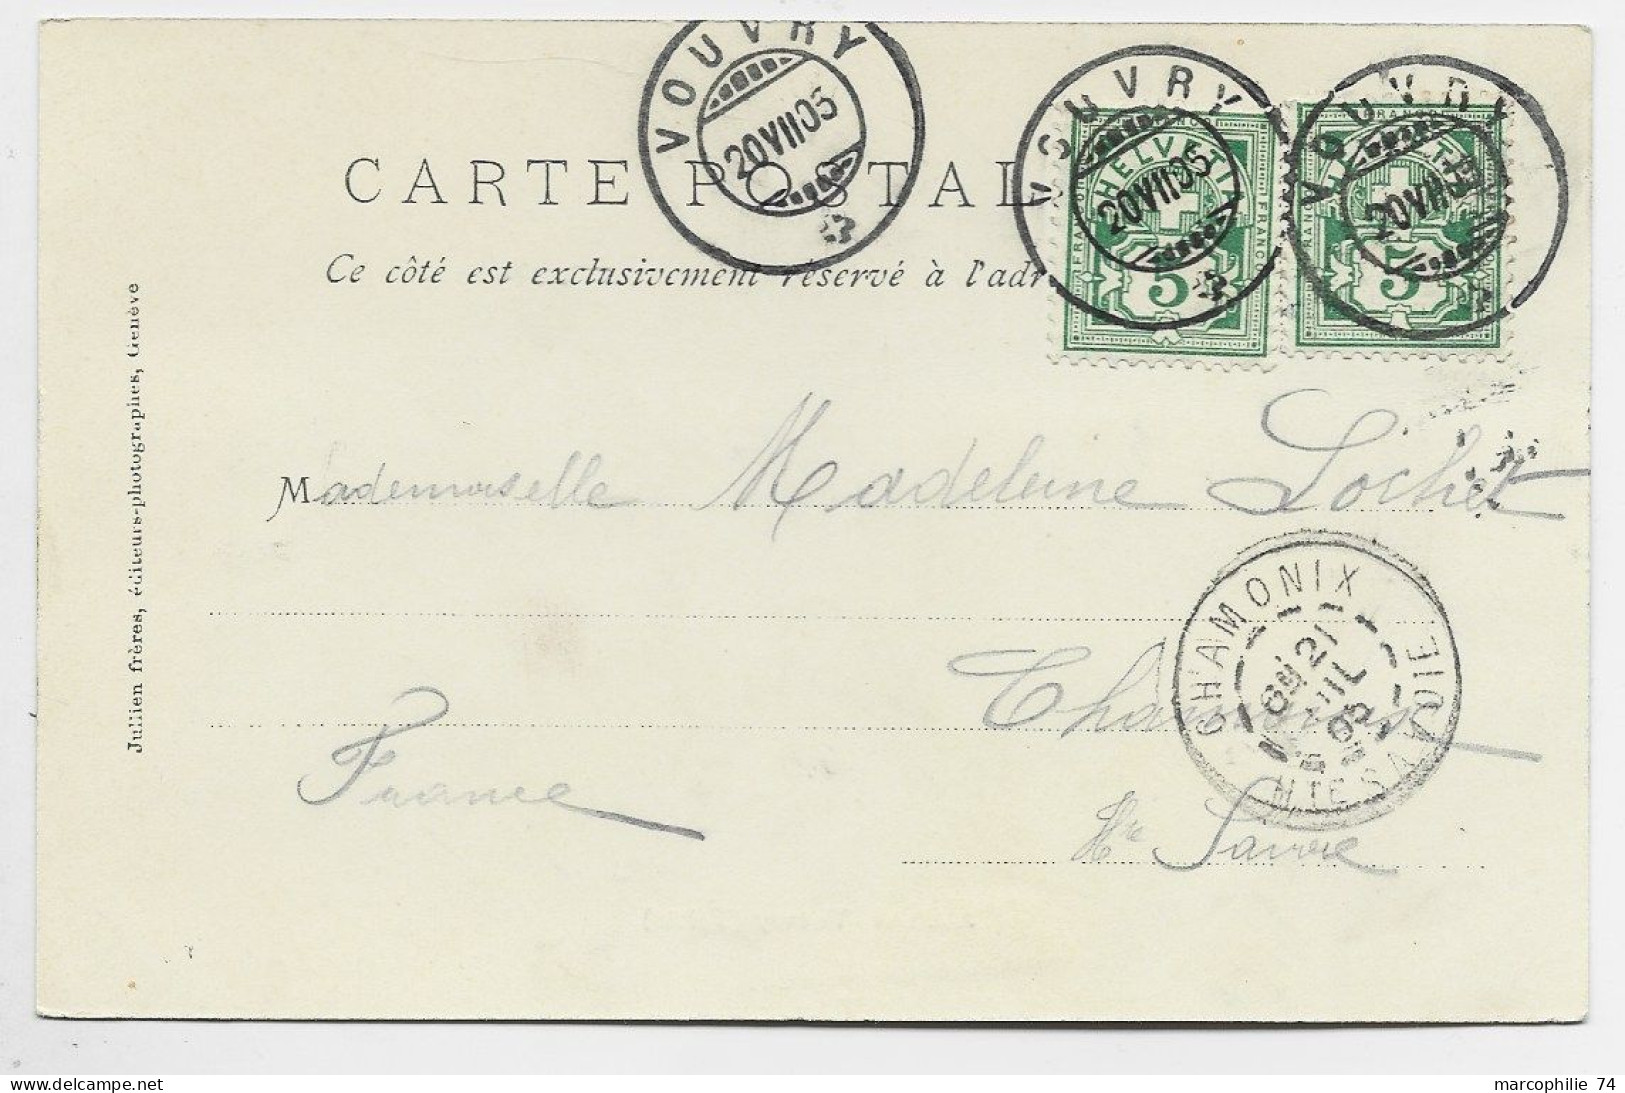 VOUVRY
20 VII 05
VOUVRY
20 VII 05
VOUVRY
20 VII 05
HELVETIA
FRANCO
FRANCO
5
HELVETIA
FRANCO
FRANCO
5
CARTE POSTAL
Ce côté est exclusivement réservé à l'adr
Jullien frères, éditeurs-photographes, Genève
Mademoiselle Madeleine Lochet
CHAMONIX
21
JUIL
05
HTE SAVOIE
Chamonix
France
Hte Savoie
delcampe.net
marcophilie 74